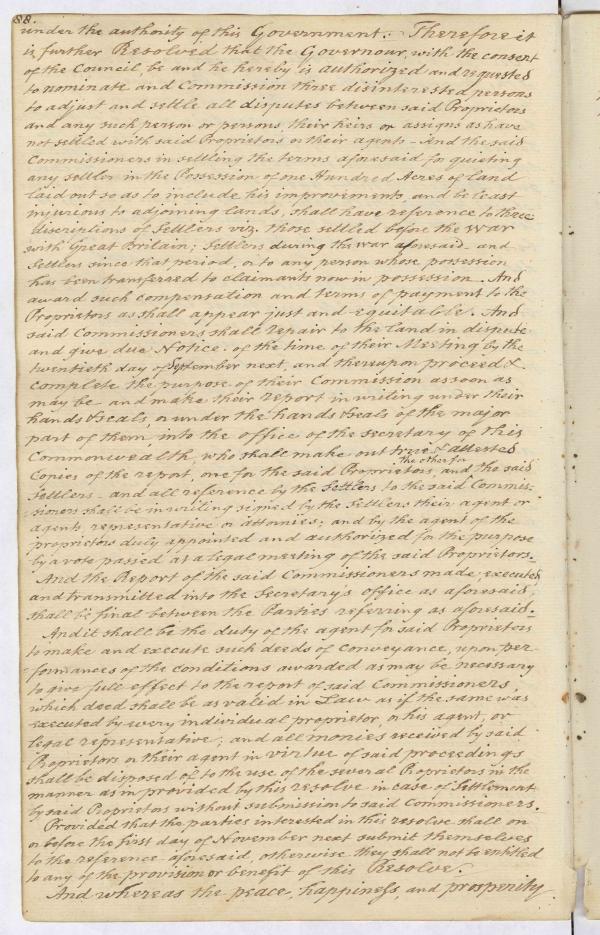 88.
under the authority of this Government. Therefore it
is further Resolved that the Governour, with the consent
of the Council, be and he hereby is authorized and requested
to nominate and Commission three disinterested persons
to adjust and settle all disputes between said Proprietors
and any such person or persons, their heirs or assigns as have
not settled with said Proprietors or their agents – And the said
Commissioners in settling the terms aforesaid for quieting
any settler in the Possession of one Hundred Acres of land
laid out so as to include his improvements, and be least
injurious to adjoining lands, shall have reference to three
discriptions of Settlers viz. those settled before the War
with Great Britain; Settlers during the war aforesaid and
Settlers since that period, or to any person whose possession
has been transferred to claimants now in possession. And
award such compensation and terms of payment to the
Proprietors as shall appear just and equitable. And
said Commissioners shall repair to the land in dispute
and give due Notice of the time of their Meeting by the
twentieth day of September next, and thereupon proceed &
complete the purpose of their Commission as soon as
may be and make their report in writing under their
hands & seals, or under the hands & seals of the major
part of them, into the office of the secretary of this
Commonwealth, who shall make out true & attested
Copies of the report, one for the said Proprietors and the other for the said
Settlers – and all reference by the Settlers to the said Commis-
sioners shall be in writing signed by the Settlers their agent or
agents representative or attonies; and by the agent of the
proprietors duly appointed and authorized for the purpose
by a vote passed at a legal meeting of the said Proprietors.
And the Report of the said Commissioners made, executed
and transmitted into the Secretary's office as aforesaid,
shall be final between the Parties referring as aforesaid.
And it shall be the duty of the agent for said Proprietors
to make and execute such deeds of conveyance, upon per-
formances of the conditions awarded as may be necessary
to give full effect to the report of said Commissioners,
which deed shall be as valid in Law as if the same was
executed by every individual proprietor, or his agent, or
legal representative; and all monies received by said
Proprietors or their agent in virtue of said proceedings
shall be disposed of to the use of the several Proprietors in the
manner as in provided by this resolve in case of Settlement
by said Proprietors without submission to said Commissioners.
Provided that the parties interested in this resolve shall on
or before the first day of November next submit themselves
to the reference aforesaid, otherwise they shall not be entitled
to any of the provision or benefit of this Resolve.
And whereas the peace, happiness, and prosperity